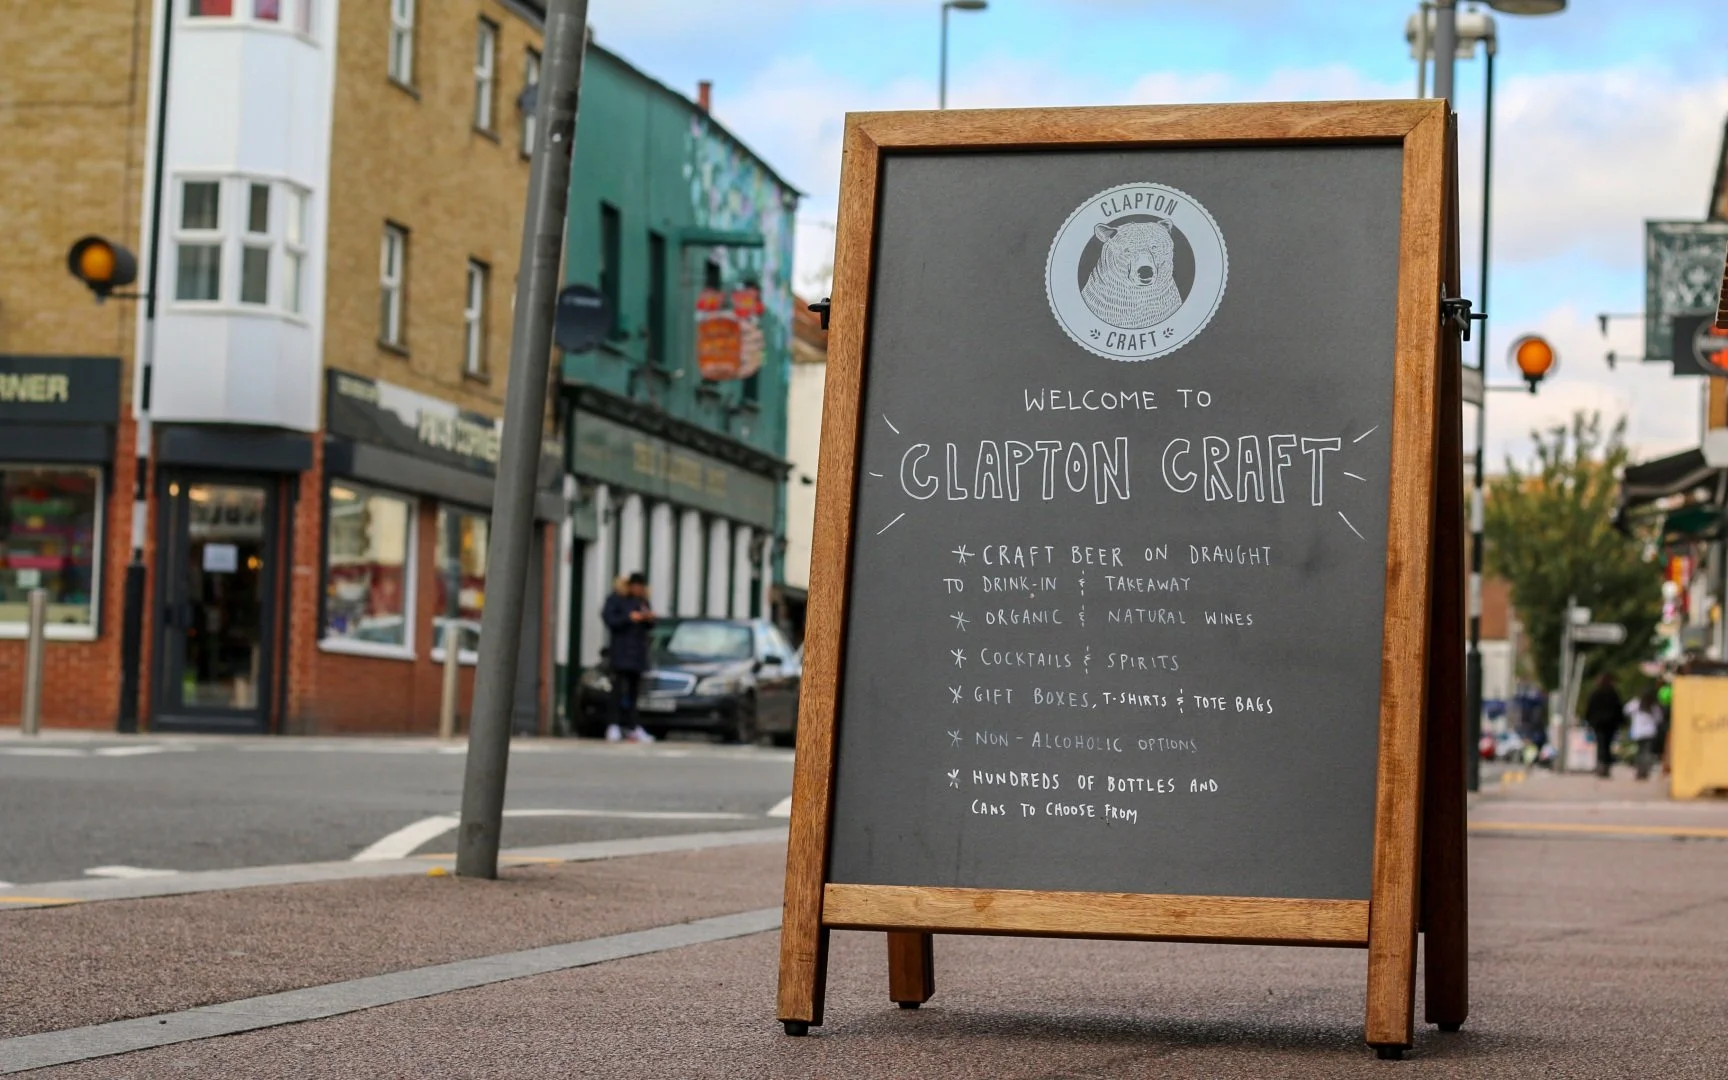 CLAPTON
CRAFT
WELCOME TO
CLAPTON CRAFT
* CRAFT BEER ON DRAUGHT
TO DRINK-IN & TAKEAWAY
* ORGANIC & NATURAL WINES
* COCKTAILS & SPIRITS
* GIFT BOXES, T-SHIRTS & TOTE BAGS
* NON-ALCOHOLIC OPTIONS
* HUNDREDS OF BOTTLES AND
CANS TO CHOOSE FROM
RNER